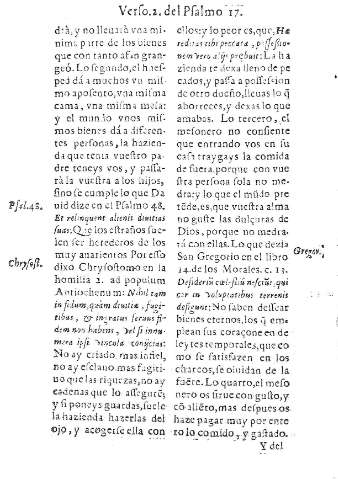 Verso.2. del Psalmo 17.
drà, y no lleuarà vna mi-
nima parte de los bienes
que con tanto afan gran-
geó. Lo segundo, el hues-
ped dà a muchos vn mis
mo aposento, vna misma
cama, vna misma mesa:
y el mundo vnos mis-
mos bienes dà a diferen-
tes personas, la hazien-
da que tenia vuestro pa-
dre teneys vos, y passa-
rà la vuestra a los hijos,
sino se cumple lo que Da
uid dize en el Psalmo 48.
Psal.48.
Et relinquent alienis diuitias
suas. Que los estraños sue-
len ser herederos de los
muy auarientos Por esso
dixo Chrysostomo en la
Chrysost.
homilia 2. ad populum
Antiochenum: Nihil tam
infidum, quàm diuitiæ, fugi-
tibus, & ingratus seruus fi-
dem nos habens, vel si innu-
mera ipse vincula conijcias:
No ay criado mas infiel,
no ay esclauo mas fugiti-
uo que las riquezas, no ay
cadenas que lo assegurẽ;
y si poneys guardas, suele
la hazienda hazerlas del
ojo, y acogerse ella con
ellos: y lo peor es, que, Hæ
reditas tibi peccata, possessio-
nem vero alijs præbuit: La ha
zienda te dexa lleno de pe
cados, y passa a possession
de otro dueño, lleuas lo q̃
aborreces, y dexas lo que
amabas. Lo tercero, el
mesonero no consiente
que entrando vos en su
casa traygays la comida
de fuera, porque con vue
stra persona sola no me-
drarà: y lo que el mũdo pre
tẽde, es, que vuestra alma
no guste las dulçuras de
Dios, porque no medra-
rà con ellas. Lo que dezia
San Gregorio en el libro
Gregor.
14. de los Morales. c. 13.
Desiderium cœlestium nesciũt, qui
cor in voluptatibus terrenis
defigunt: No saben dessear
bienes eternos, los q̃ em
plean sus coraçones en de
leytes temporales, que co
mo se satisfazen en los
charcos, se oluidan de la
fuẽte. Lo quarto, el meso
nero os sirue con gusto, y
cõ aliẽto, mas despues os
haze pagar muy por ente
ro lo comido, y gastado.
Y del